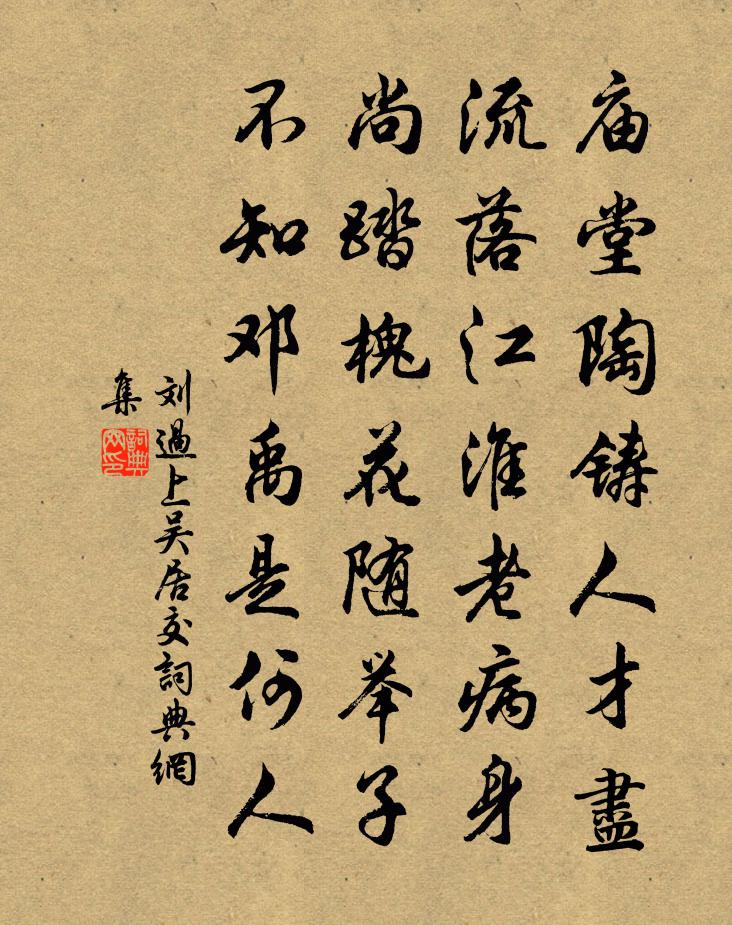 庙堂陶铸人才盡
流落江淮老病身
尚踏槐花随举子
不知邓禹是何人
刘過上吴居父詞典網
集
詞典
网印